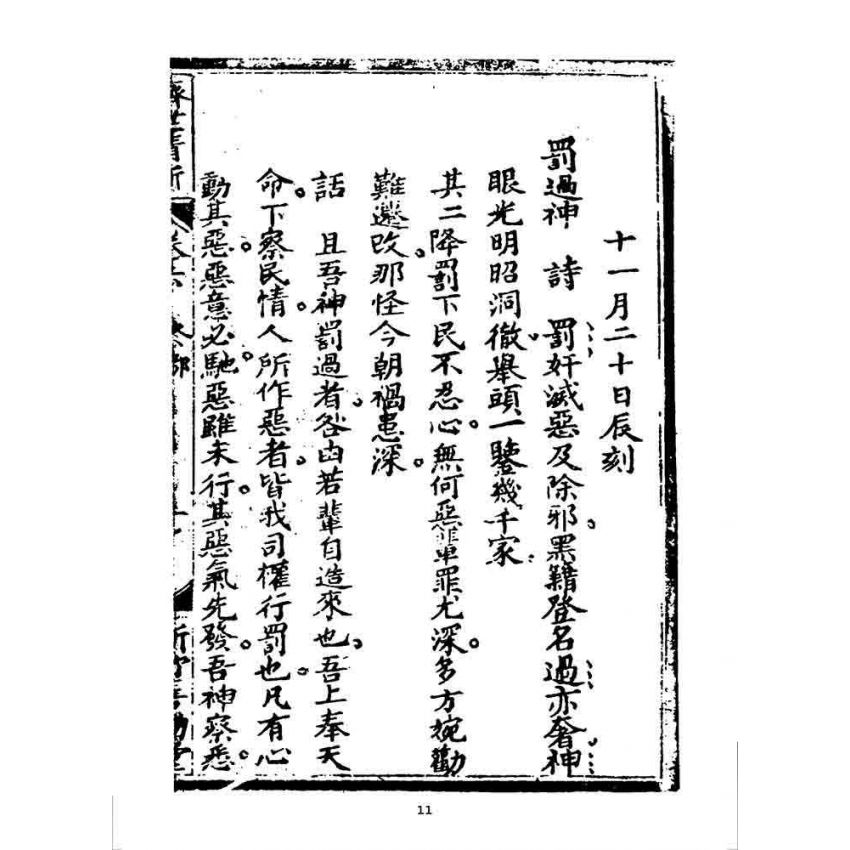 十一月二十日辰刻
罰過神　詩　罰奸滅惡及除邪。黑籍登名過亦奢。神
眼光明昭洞徹。舉頭一鑒幾千家。
其二　降罰下民不忍心。無何惡輩罪尤深。多方婉勸
難遷改。那怪今朝禍患深。
話　且吾神罰過者。咎由若輩自造來也。吾上奉天
命。下察民情。人所作惡者。皆我司權行罰也。凡有心
動其惡。惡意必馳。惡雖未行。其惡氣先發。吾神察悉。
11